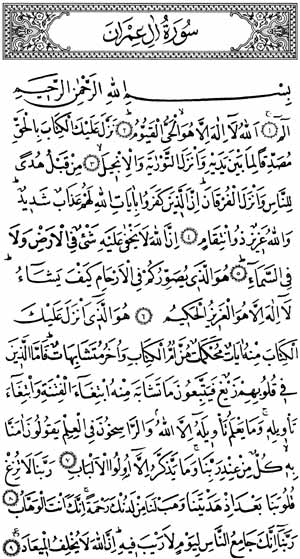 سُورَةُ اٰلِ عِمْرَانَ
بِسْمِ اللهِ الرَّحْمٰنِ الرَّحِيمِ
الٓمٓ ۝١ اَللهُ لَا اِلٰهَ اِلَّا هُوَ الْحَيُّ الْقَيُّومُ ۝٢ نَزَّلَ عَلَيْكَ الْكِتَابَ بِالْحَقِّ
مُصَدِّقًا لِمَا بَيْنَ يَدَيْهِ وَاَنْزَلَ التَّوْرٰيةَ وَالْاِنْجِيلَ ۝٣ مِنْ قَبْلُ هُدًى
لِلنَّاسِ وَاَنْزَلَ الْفُرْقَانَ اِنَّ الَّذِينَ كَفَرُوا بِاٰيَاتِ اللهِ لَهُمْ عَذَابٌ شَدِيدٌ
وَاللهُ عَزِيزٌ ذُو انْتِقَامٍ ۝٤ اِنَّ اللهَ لَا يَخْفٰى عَلَيْهِ شَيْءٌ فِي الْاَرْضِ وَلَا
فِي السَّمَاءِ ۝٥ هُوَ الَّذِي يُصَوِّرُكُمْ فِي الْاَرْحَامِ كَيْفَ يَشَاءُ
لَا اِلٰهَ اِلَّا هُوَ الْعَزِيزُ الْحَكِيمُ ۝٦ هُوَ الَّذِي اَنْزَلَ عَلَيْكَ
الْكِتَابَ مِنْهُ اٰيَاتٌ مُحْكَمَاتٌ هُنَّ اُمُّ الْكِتَابِ وَاُخَرُ مُتَشَابِهَاتٌ فَاَمَّا الَّذِينَ
فِي قُلُوبِهِمْ زَيْغٌ فَيَتَّبِعُونَ مَا تَشَابَهَ مِنْهُ ابْتِغَاءَ الْفِتْنَةِ وَابْتِغَاءَ
تَأْوِيلِهِ وَمَا يَعْلَمُ تَأْوِيلَهُ اِلَّا اللهُ وَالرَّاسِخُونَ فِي الْعِلْمِ يَقُولُونَ اٰمَنَّا
بِهِ كُلٌّ مِنْ عِنْدِ رَبِّنَا وَمَا يَذَّكَّرُ اِلَّا اُولُوا الْاَلْبَابِ ۝٧ رَبَّنَا لَا تُزِغْ
قُلُوبَنَا بَعْدَ اِذْ هَدَيْتَنَا وَهَبْ لَنَا مِنْ لَدُنْكَ رَحْمَةً اِنَّكَ اَنْتَ الْوَهَّابُ ۝٨
رَبَّنَا اِنَّكَ جَامِعُ النَّاسِ لِيَوْمٍ لَا رَيْبَ فِيهِ اِنَّ اللهَ لَا يُخْلِفُ الْمِيعَادَ ۝٩